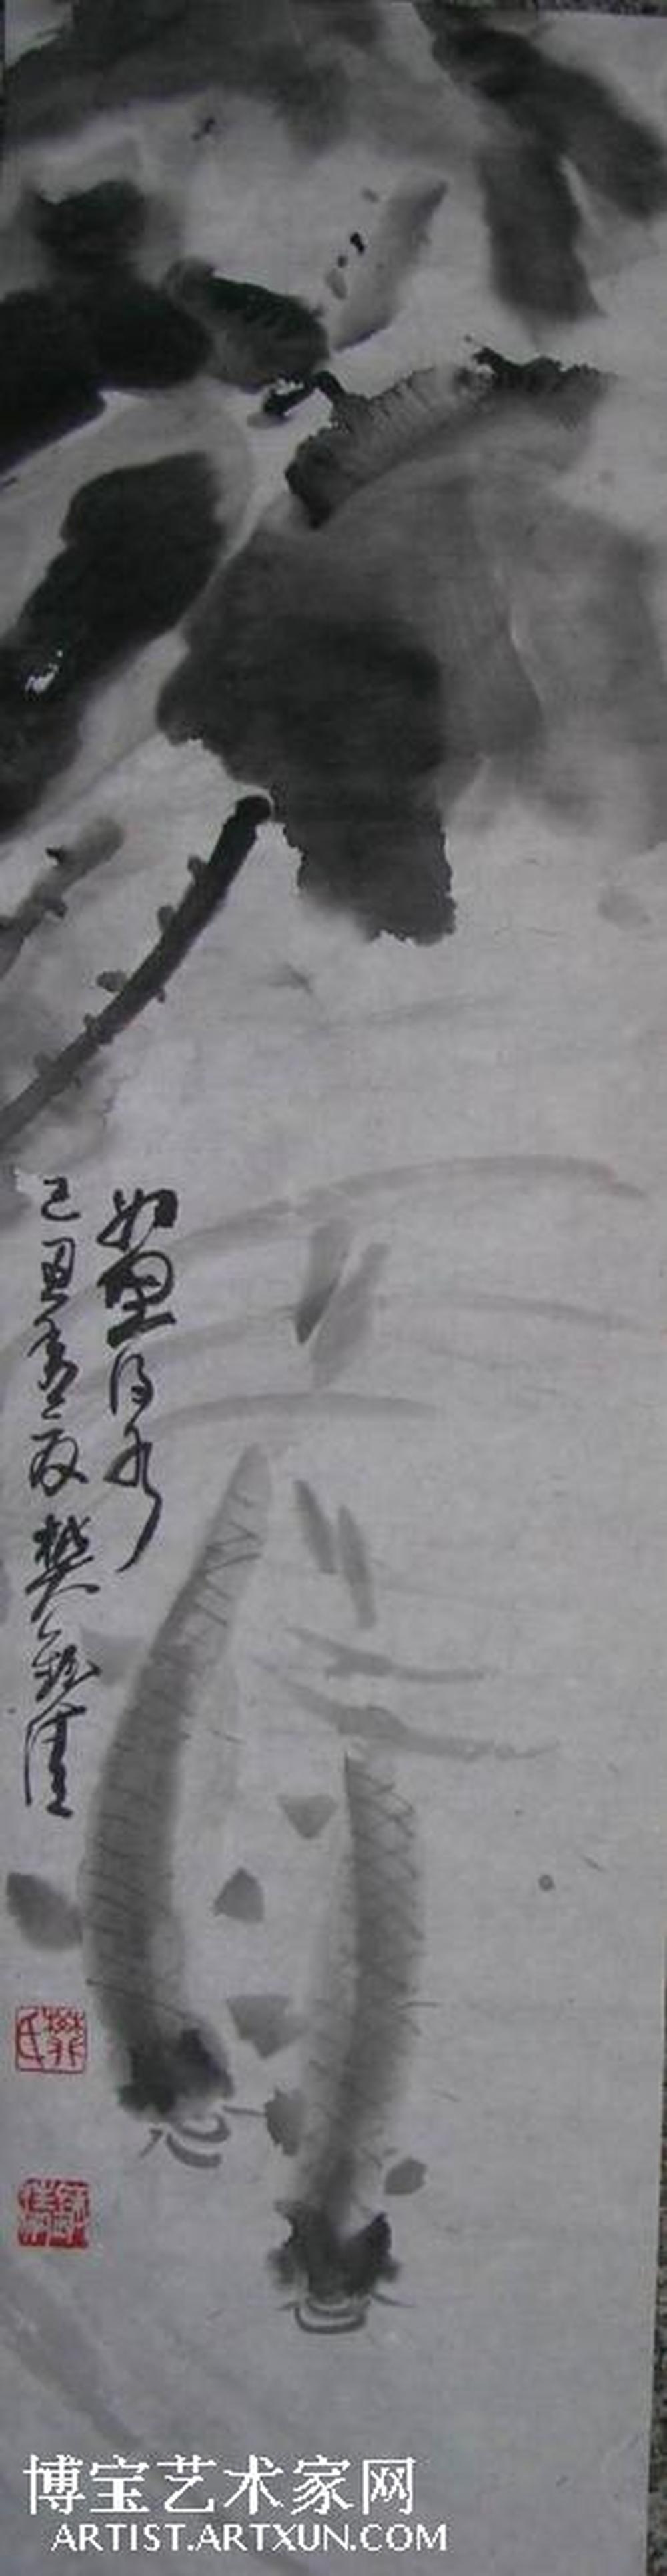 如鱼得水
己丑春月樊
清
樊氏
博宝艺术家网
ARTIST.ARTXUN.COM